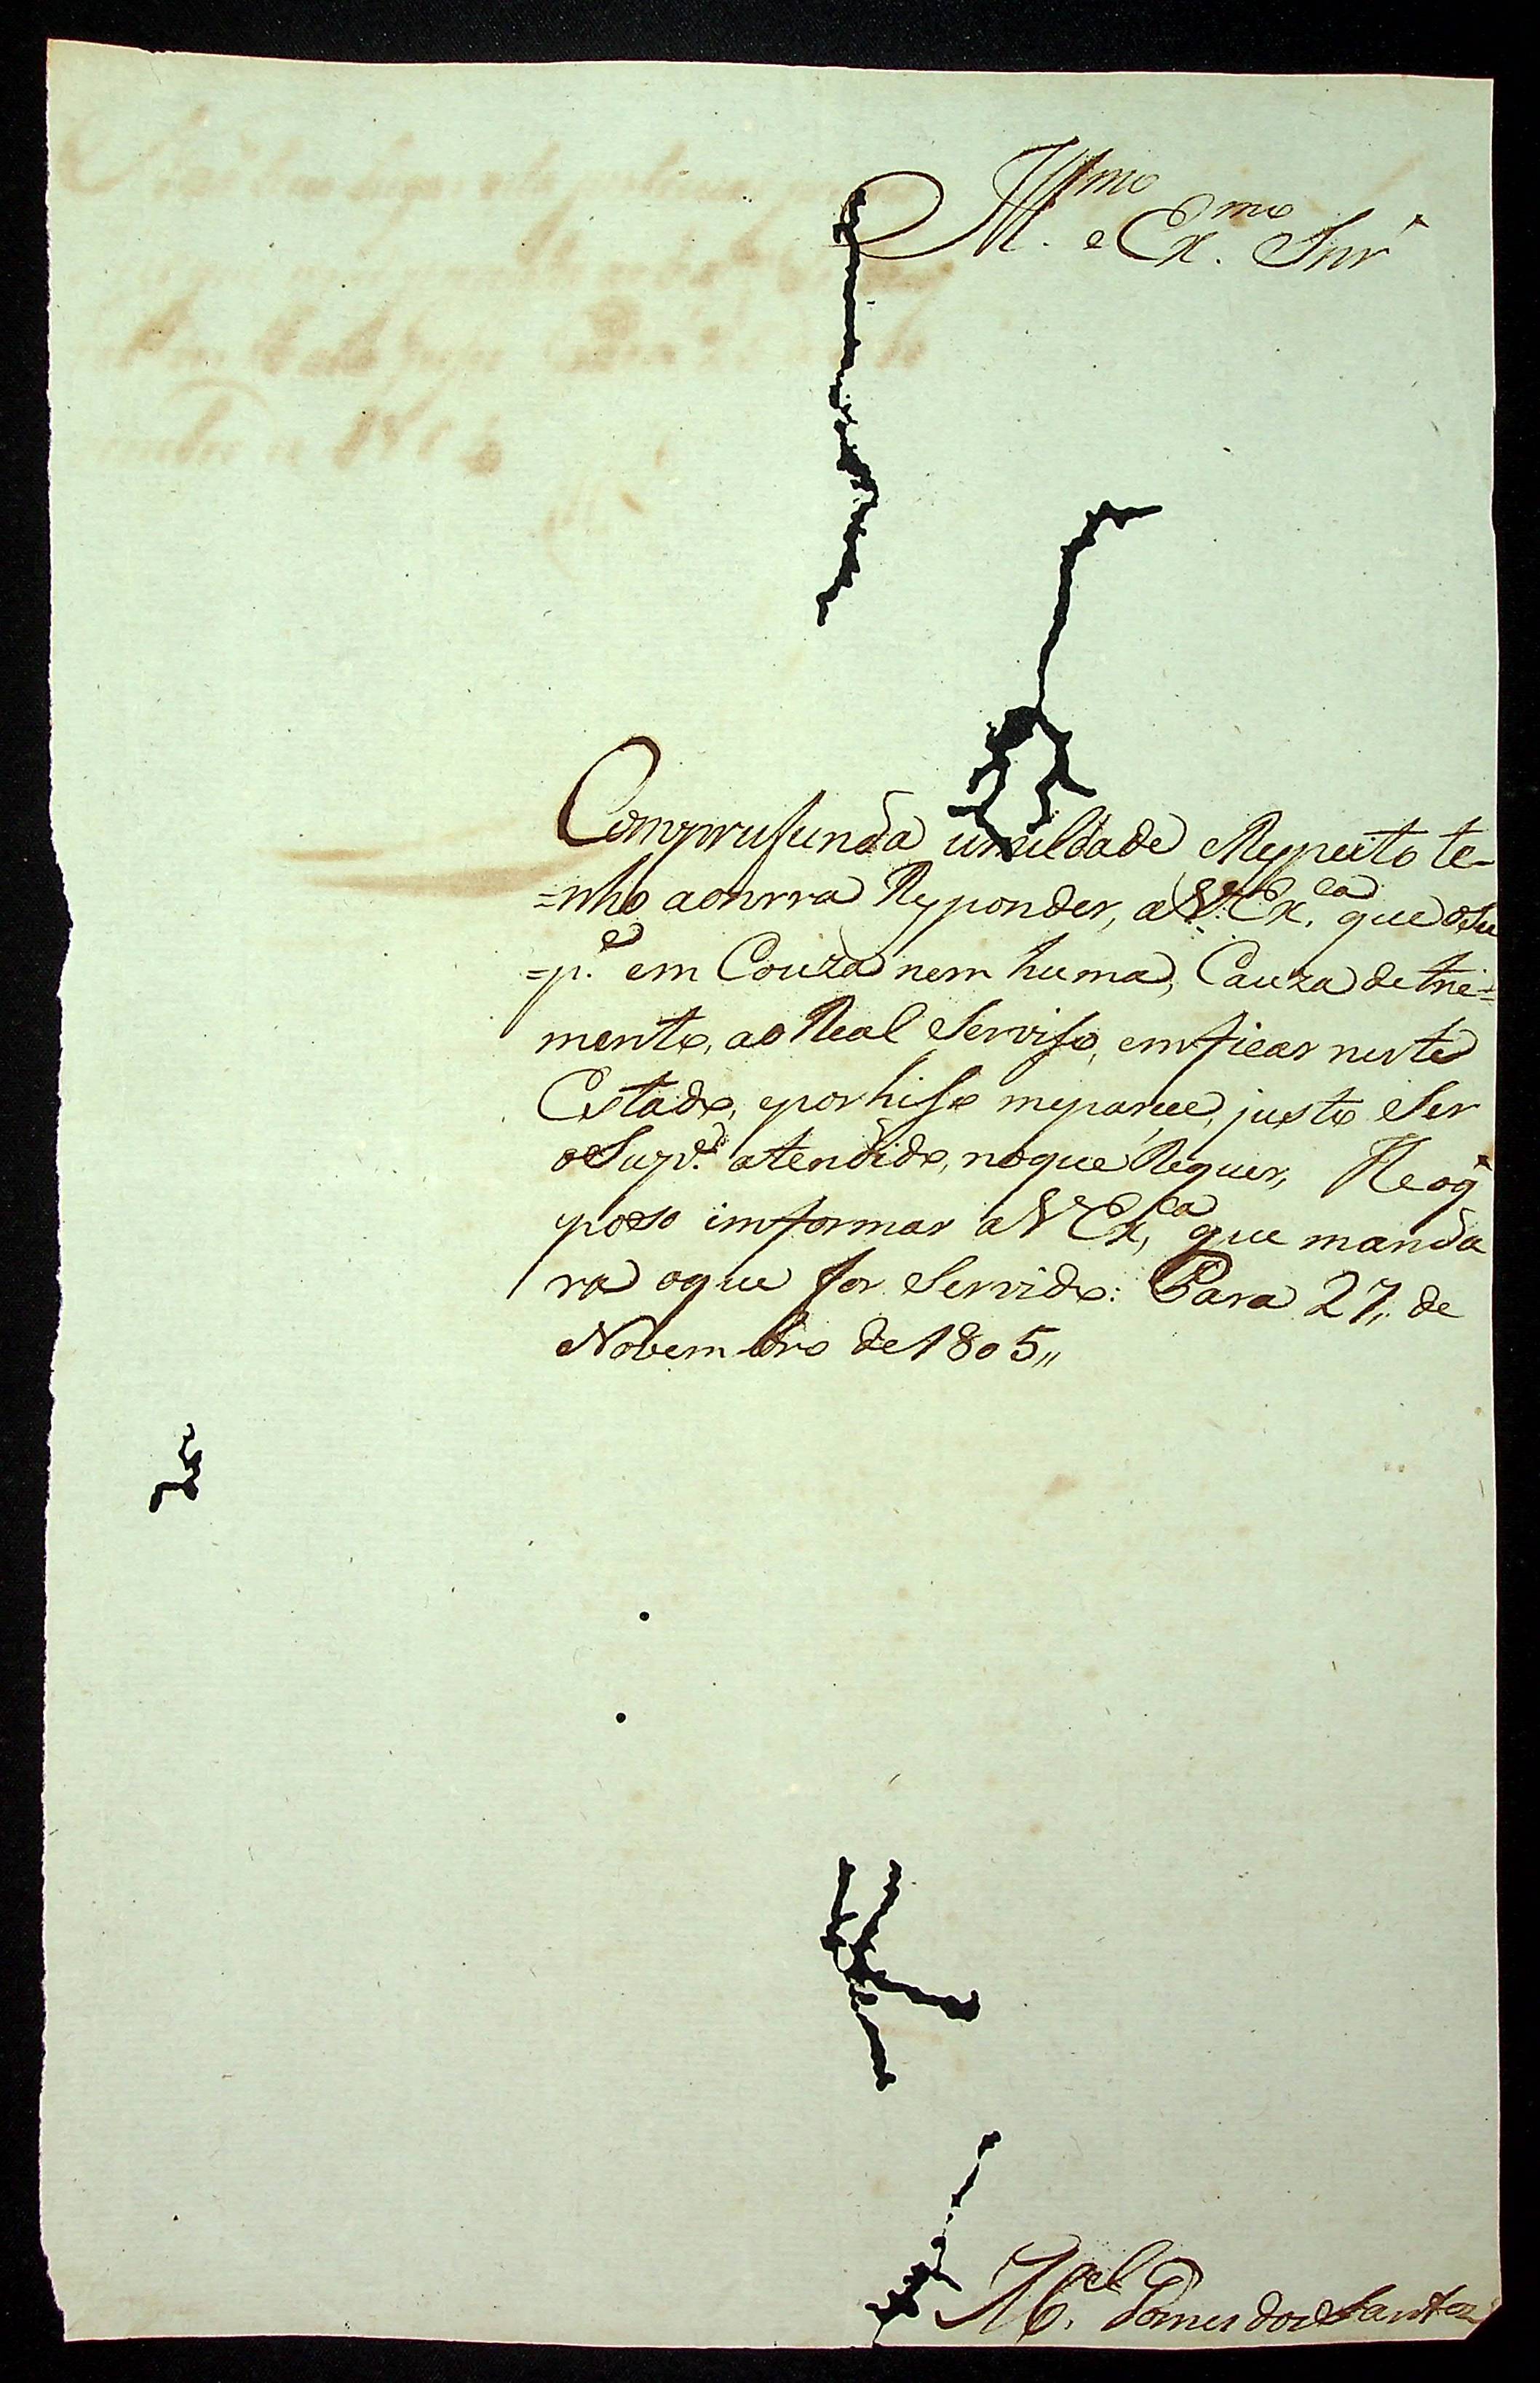 Ill.mo e Ex.mo Snr
Comprufunda umildade Respeito te-
=nho aonrra Responder, a V. Ex.ca que oSu
=p.e em Couza nem huma, Cauza detri=
mento, ao Real Serviso, emficar neste
Estado, eporhiso meparece, justo Ser
oSup.e atendido, noque Requer, He oq'
poso imformar aV Ex,ca que manda
ra oque for Servido: Para 27,, de
Novembro de 1805,,
M.el Gomes dos Santos